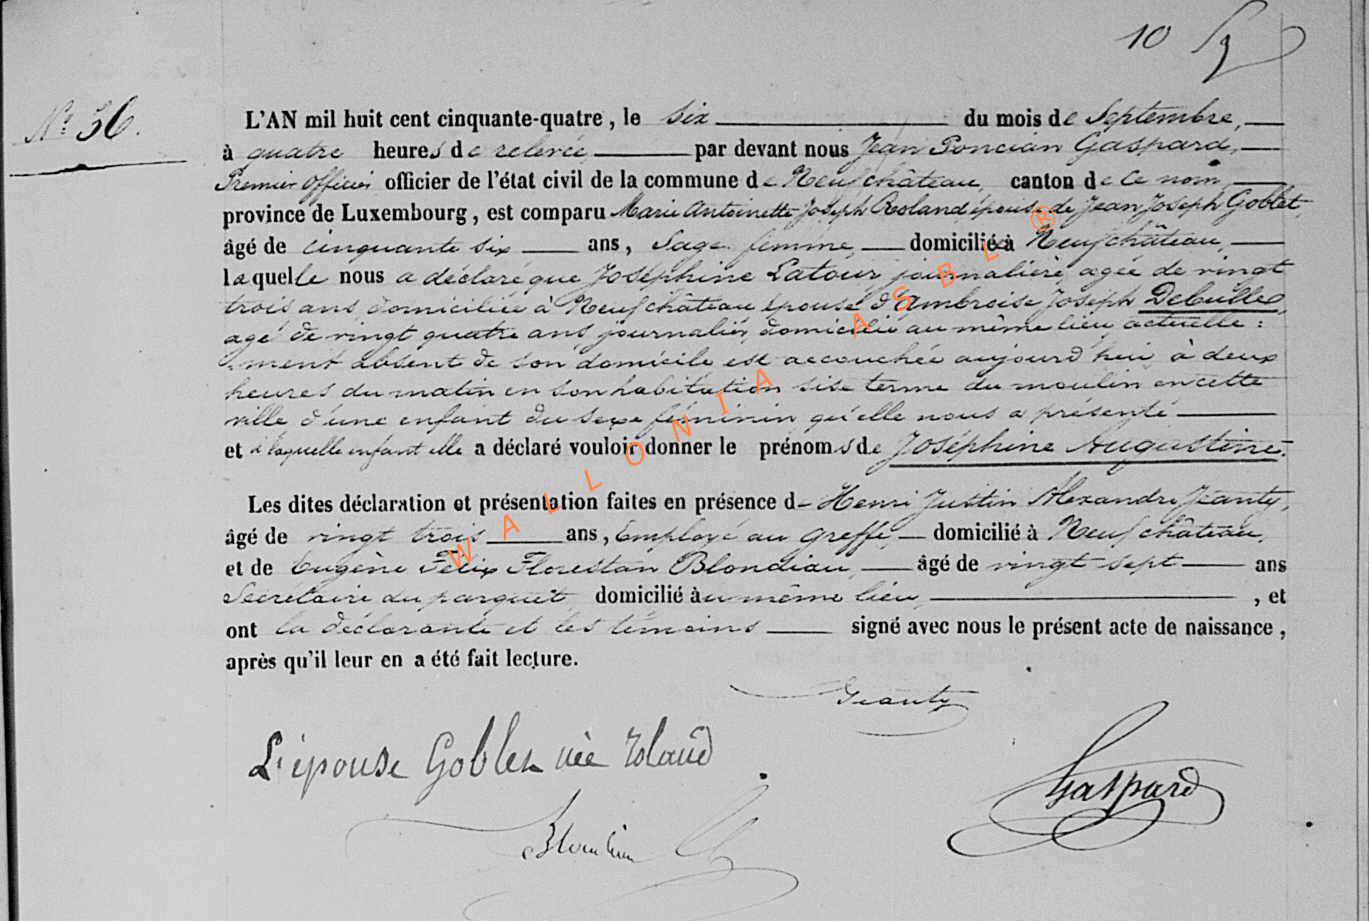 10
Nº 36.
L'AN mil huit cent cinquante-quatre, le six du mois de Septembre,
à quatre heures de relevée par devant nous Jean Poncian Gaspard,
Premier Officier officier de l'état civil de la commune de Neufchâteau, canton de ce nom,
province de Luxembourg, est comparu Marie Antoinette Joseph Roland épouse de Jean Joseph Goblet,
âgé de cinquante six ans, Sage femme, domiciliée à Neufchâteau,
laquelle nous a déclaré que Joséphine Latour journalière agée de vingt
trois ans, domiciliée à Neufchâteau épouse d'Ambroise Joseph
agé de vingt quatre ans journalier, domicilié au même lieu actuelle:
ment absent de son domicile est accouchée aujourd'hui à deux
heures du matin en son habitation sise terme du moulin en cette
ville d'une enfant du sexe féminin qu'elle nous a présenté
et à laquelle enfant elle a déclaré vouloir donner le prénoms de Joséphine Augustine.
Les dites déclaration et présentation faites en présence d- Henri Justin Alexandre Jeanty,
âgé de vingt trois ans, Employé au greffe, domicilié à Neufchâteau,
et de Eugène Félix Florestan Blondiau, âgé de vingt sept ans
Secrétaire du parquet, domicilié au même lieu, , et
ont la déclarante et les témoins signé avec nous le présent acte de naissance,
après qu'il leur en a été fait lecture.
Jeanty
L'épouse Goblet née Roland
Gaspard
Blondiau
WALLONIA ASBL ®